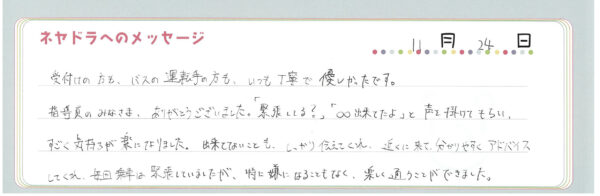 ネヤドラへのメッセージ
11月24日
受付けの方も、バスの運転手の方も、いつも丁寧で優しかったです。
指導員のみなさま、ありがとうございました。「緊張してる?」「○○出来てたよ」と声を掛けてもらい、
すごく気持ちが楽になりました。出来てないことも、しっかり伝えてくれ、近くに来て、分かりやすくアドバイス
してくれ、毎回緊張していましたが、特に嫌になることもなく、楽しく通うことができました。